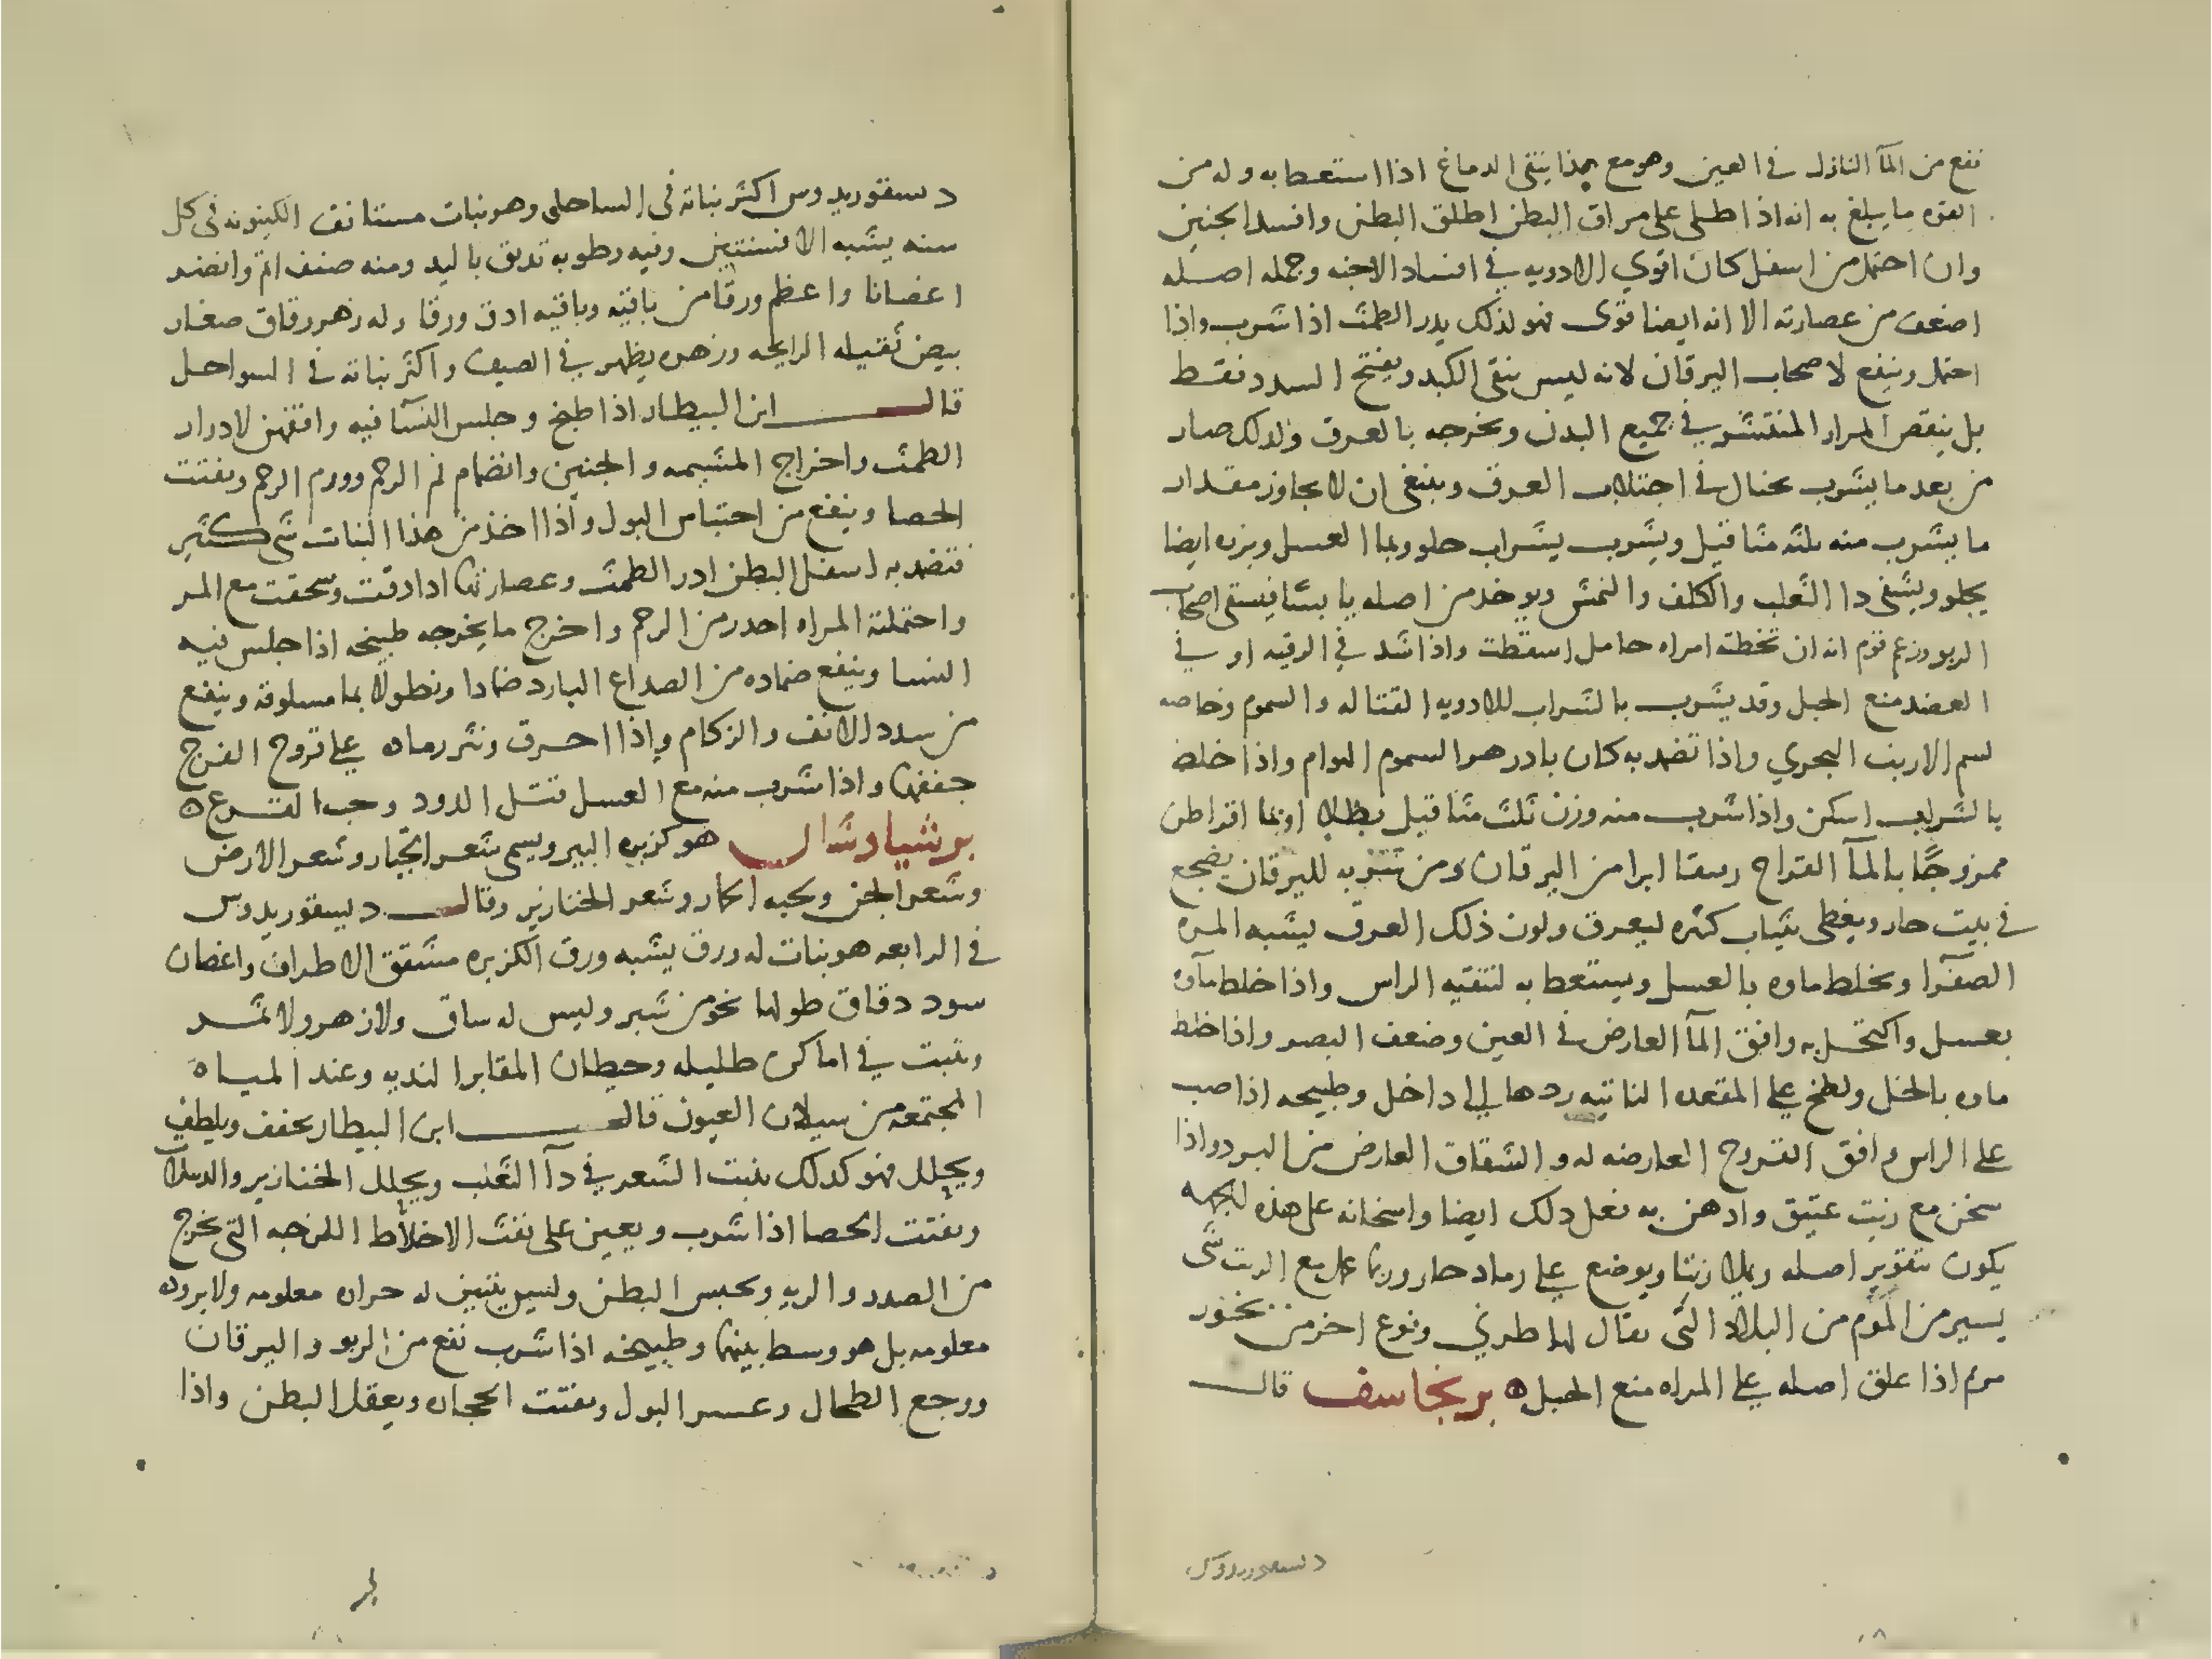 نفع من المآ النازل في العين وهو مع هذا ينقى الدماغ اذا استعط به وله من
القوه ما يبلغ به انه اذا طلى على مراق البطن اطلق البطن وافسد الجنين
وان احتمل من اسفل كان اقوي الادويه في افساد الاجنه وجمله اصله
اضعف من عصارته الا انه ايضا قوى فهو لذلك يدر الطمث اذا شرب واذا
احتمل وينفع لاصحاب اليرقان لانه ليس ينقى الكبد ويفتح السدد فقط
بل ينقص المرار المنتشر في جميع البدن ويخرجه بالعرق ولذلك صار
من بعد ما يشرب يحتال في اجتلاب العرق وينبغى ان لا يجاوز مقدار
ما يشرب منه ثلثه مثاقيل ويشرب بشراب حلو وبما العسل وبزره ايضا
يجلو ويشفى دا الثعلب والكلف والنمش ويوخذ من اصله يابسا فيسقى اصحاب
الربو وزعم قوم انه ان تخطته امراه حامل اسقطت واذا شد في الرقبه او في
العضد منع الحبل وقد يشرب بالشراب للادويه القتاله والسموم وخاصه
لسم الارنب البحري واذا تضمد به كان بادزهر السموم الهوام واذا خلط
بالشراب اسكر واذا شرب منه وزن ثلث مثاقيل بطلا او بما اقراطن
ممزوجًا بالمآ القراح وسقا ابرا من اليرقان ومن شربه لليرقان يضجع
في بيت حار ويغطى بثياب كثره ليعرق ولون ذلك العرق يشبه المره
الصفرا ويخلط ماوه بالعسل ويستعط به لتنقيه الراس واذا خلط مآوه
بعسل واكتحل به وافق المآ العارض في العين وضعف البصر واذا خلط
ماوه بالخل ولطخ علي المقعده الناتيه ردها الي داخل وطبيخه اذا صب
على الراس وافق القروح العارضه له والشقاق العارض من البرد واذا
سخن مع زيت عتيق وادهن به فعل ذلك ايضا واسخانه على هذه الجهه
يكون بتقوير اصله ويملا زيتا ويوضع علي رماد حار وربما عمل مع الزيت شى
يسير من الموم من البلاد التى يقال لها طرني ونوع اخر من بخور
مريم اذا علق اصله علي المراه منع الحبل ه برنجاسف قال
دسقوريدوس
دسقوريدوس اكثر نباته في الساحل وهو نبات مستانف الكينونه في كل
سنه يشبه الافسنتين وفيه رطوبه تدبق باليد ومنه صنف اتم وانضد
اغصانا واعظم ورقا من باقيه وباقيه ادق ورقا وله زهر رقاق صغار
بيض ثقيله الرايحه وزهره يظهر في الصيف واكثر نباته في السواحل
قال ابن البيطار اذا طبخ وجلس النسآ فيه وافقهن لادرار
الطمث واخراج المشيمه والجنين وانضمام فم الرحم وورم الرحم ويفتت
الحصا وينفع من احتباس البول واذا اخذ من هذا النبات شى كثير
فتضمد به اسفل البطن ادر الطمث وعصارتها اذا دقت وسحقت مع المر
واحتملته المراه احدر من الرحم واخرج ما يخرجه طبيخه اذا جلس فيه
النسا وينفع ضماده من الصداع البارد ضمادا ونطولا بما مسلوقه وينفع
من سدد الانف والزكام واذا احرق ونثر رماده علي قروح الفرج
جففها واذا شرب منه مع العسل قتل الدود وحب القرع ه
برشياوشال هو كزبره البير ويسمى شعر الجبار وشعر الارض
وشعر الجن ولحيه الحمار وشعر الخنازير وقال ديسقوريدوس
في الرابعه هو نبات له ورق يشبه ورق الكزبره مشقق الاطراف واغصان
سود دقاق طولها نحو من شبر وليس له ساق ولا زهر ولا ثمر
وينبت في اماكن ظليله وحيطان المقابر النديه وعند المياه
المجتمعه من سيلان العيون قال ابن البيطار يجفف ويلطف
ويحلل فهو كذلك ينبت الشعر في دآ الثعلب ويحلل الخنازير والدبيلات
ويفتت الحصا اذا شرب ويعين على نفث الاخلاط اللزجه التى تخرج
من الصدر والريه ويحبس البطن وليس يتبين له حراره معلومه ولا بروده
معلومه بل هو وسط بينهما وطبيخه اذا شرب نفع من الربو واليرقان
ووجع الطحال وعسر البول ويفتت الحجاره ويعقل البطن واذا